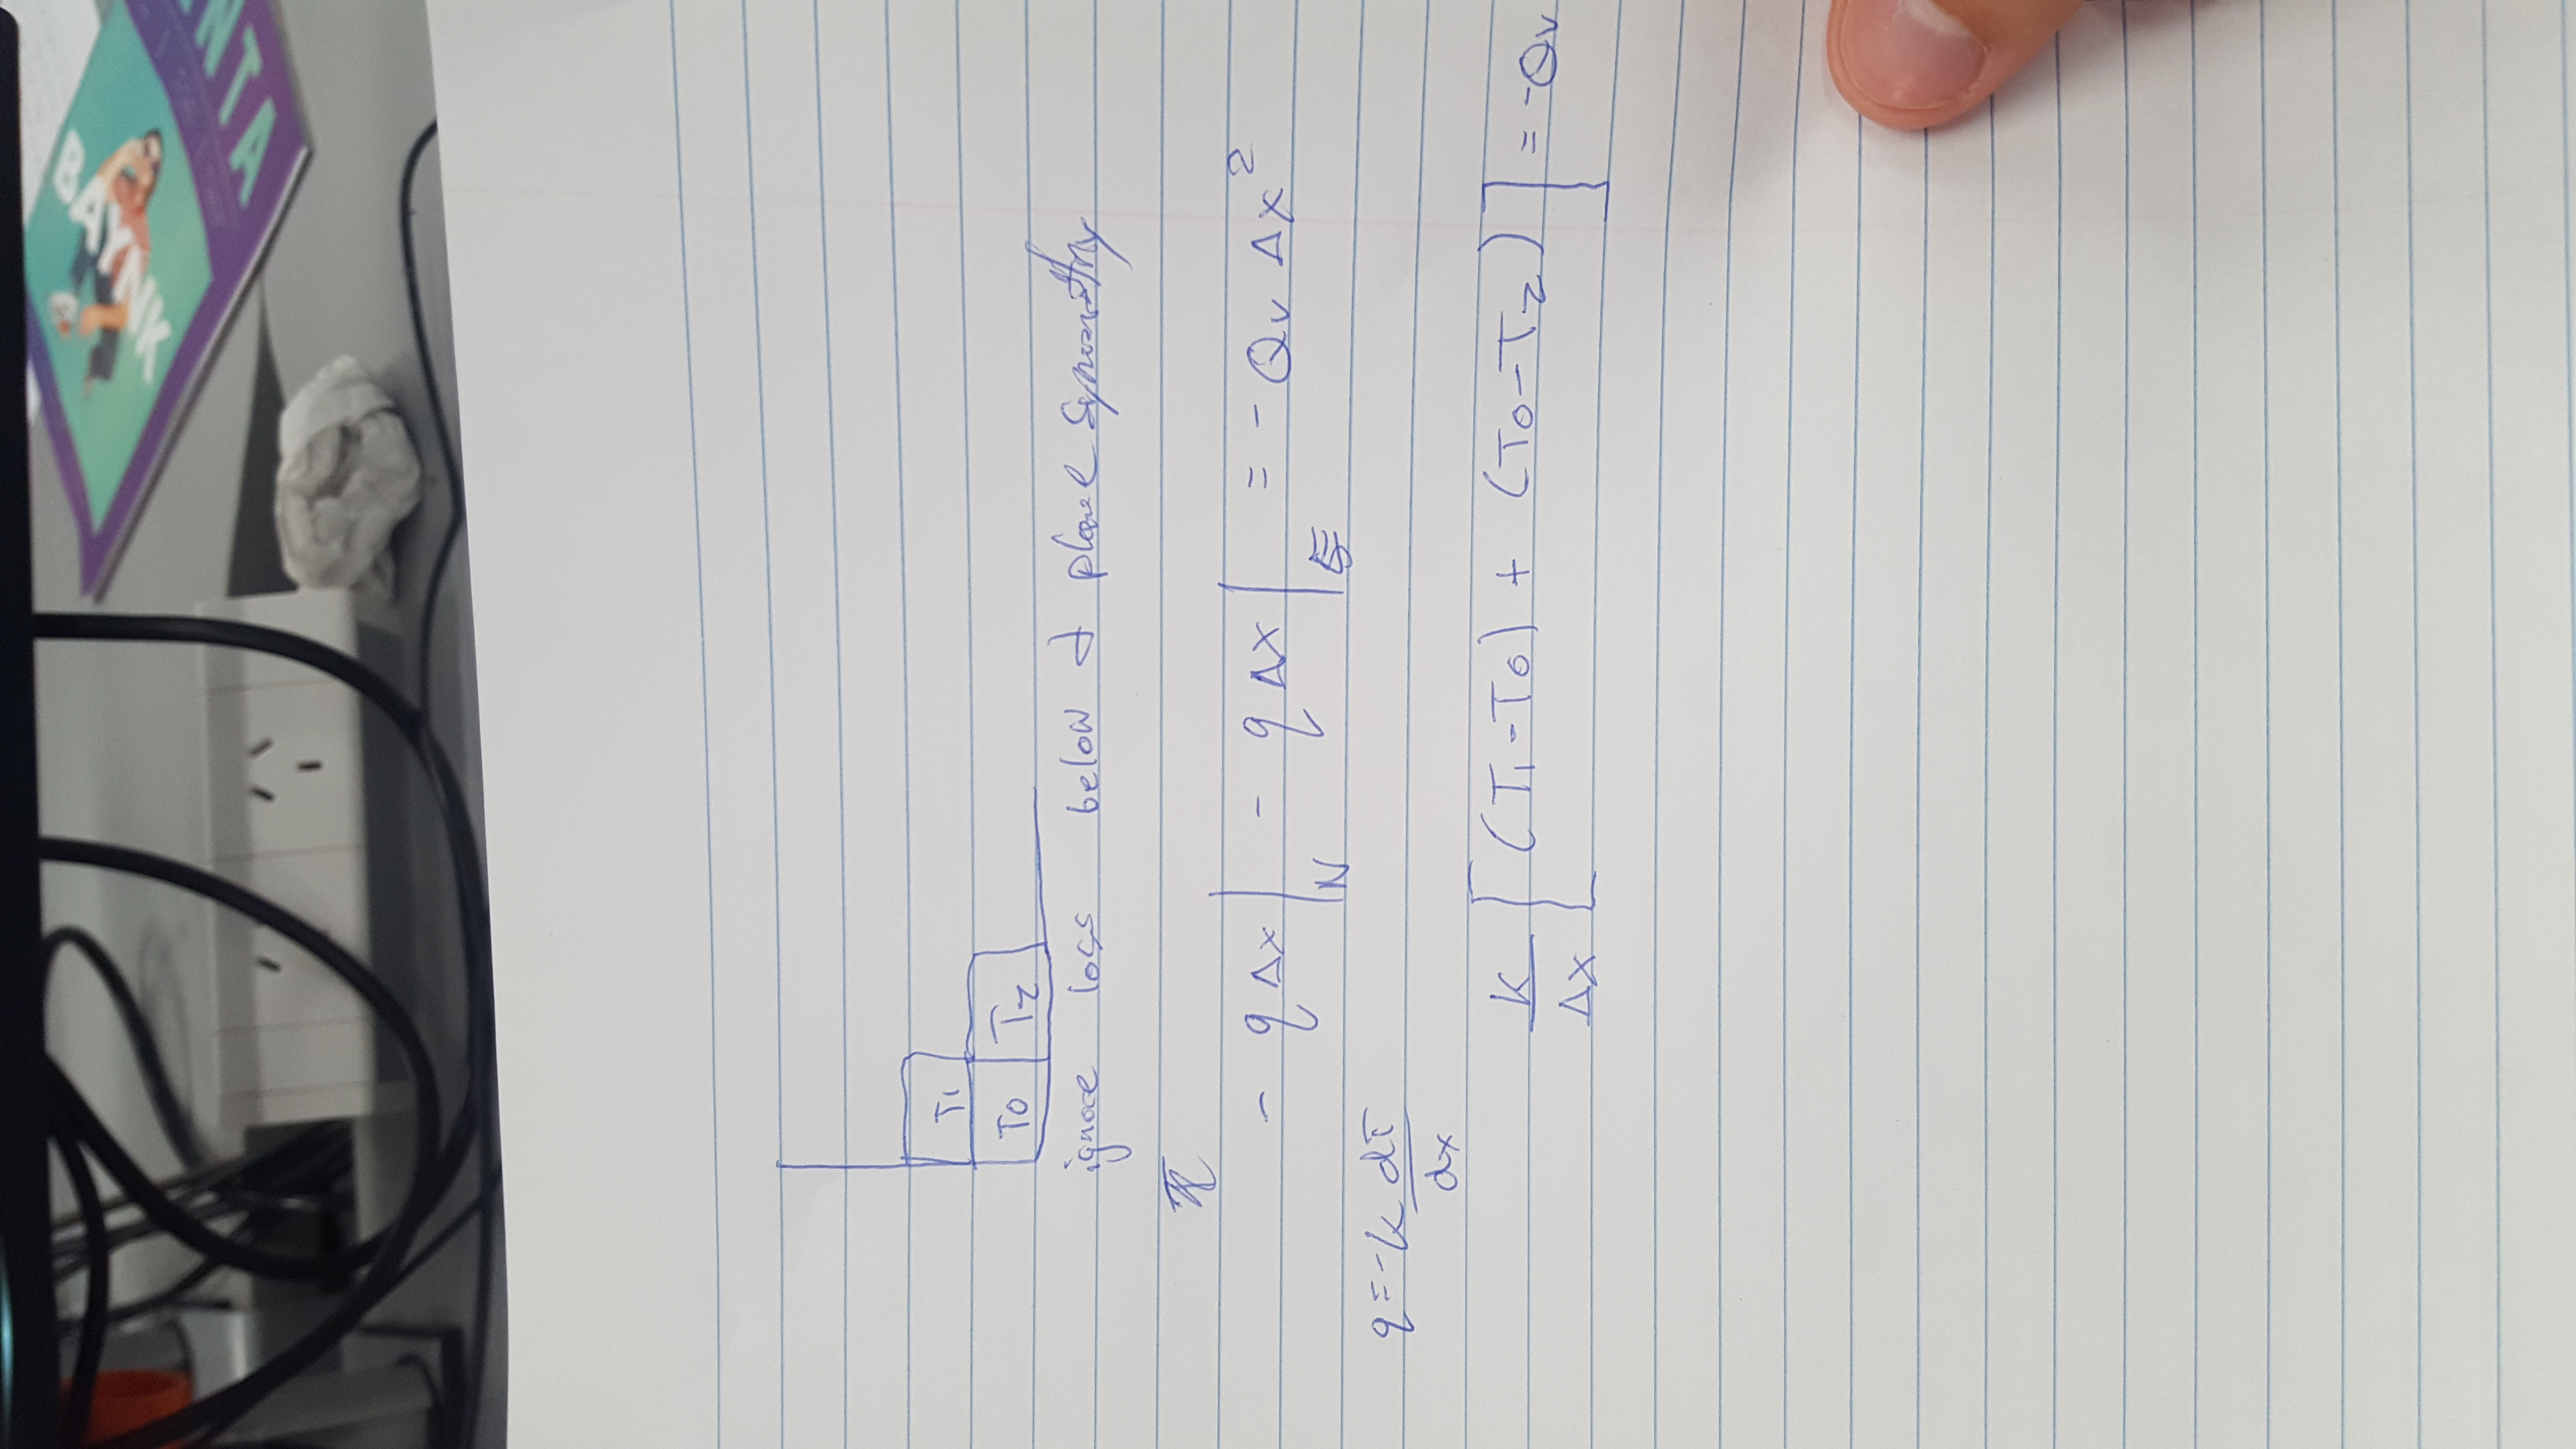 BAYNK
NTA
T1
T0 T2
ignore loss below & plane symmetry
- q Δx |N - q Δx |E = - Qv Δx²
q = -k dT/dx
k/Δx [ (T1 - T0) + (T0 - T2) ] = - Qv